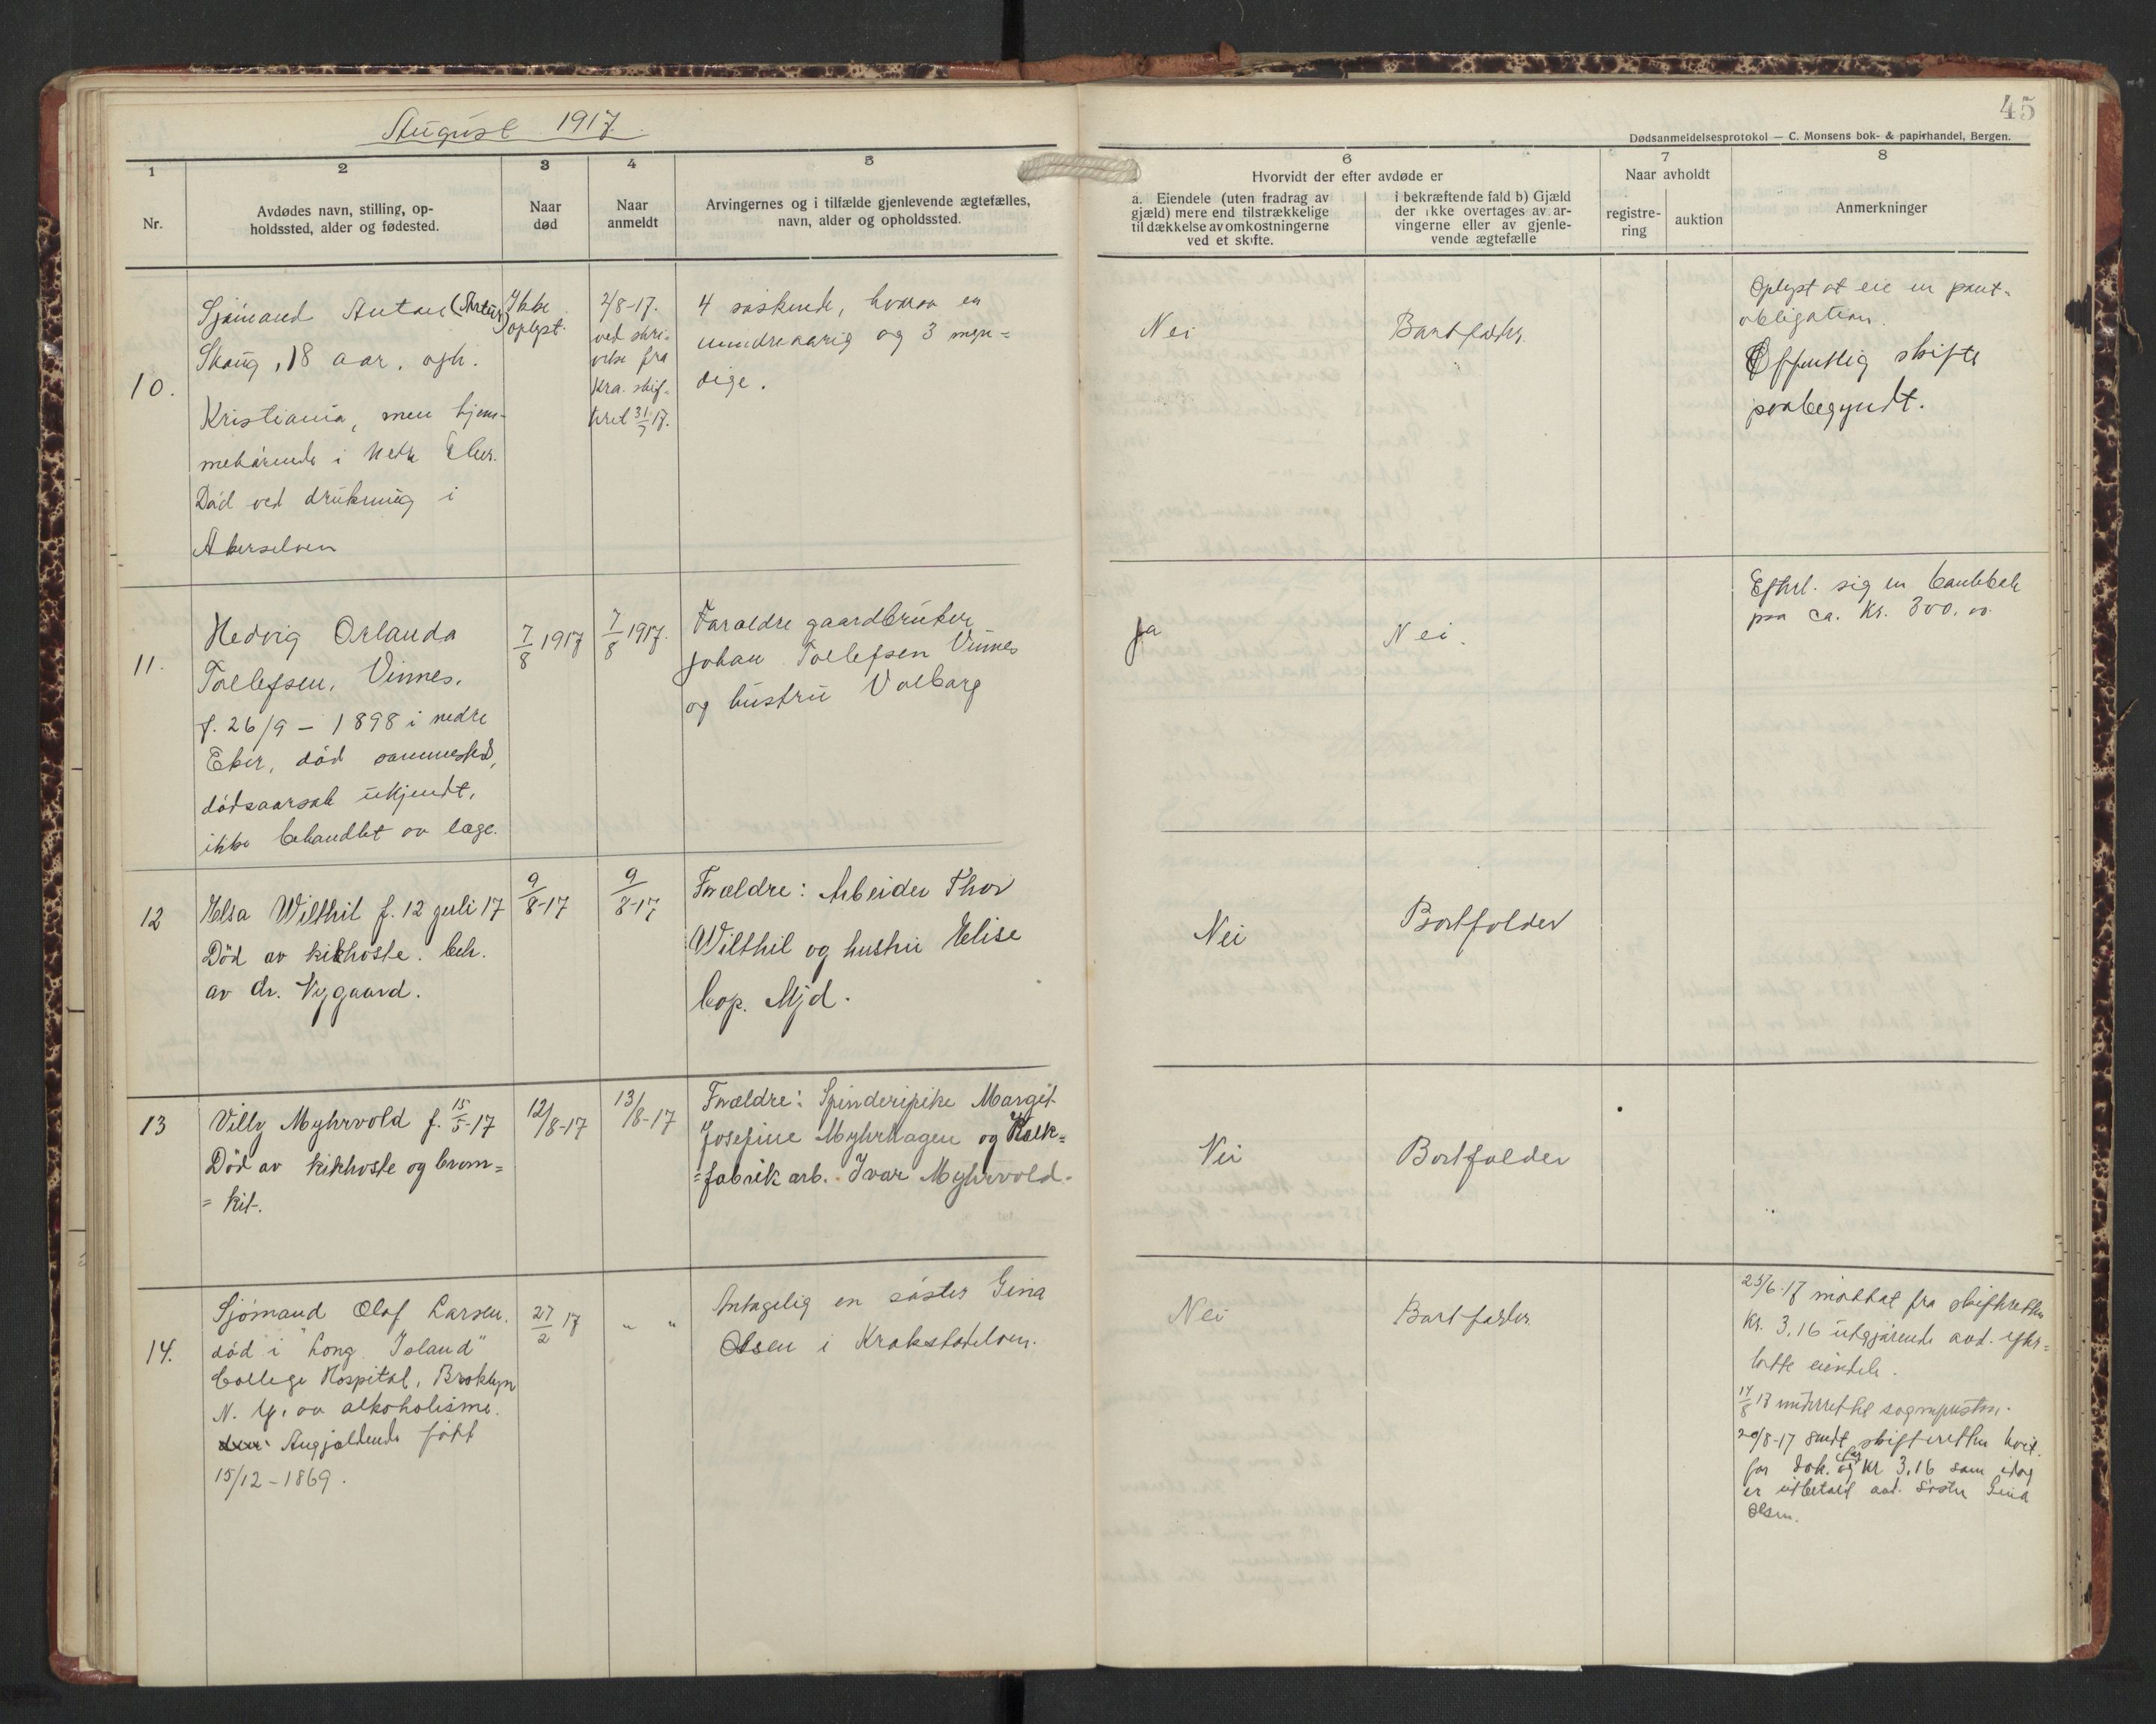 August 1917.
45
Dødsanmeldelsesprotokol — C. Monsens bok- & papirhandel, Bergen.
1
Nr.
2
Avdødes navn, stilling, op-
holdssted, alder og fødested.
3
Naar
død
4
Naar
anmeldt
5
Arvingernes og i tilfælde gjenlevende ægtefælles,
navn, alder og opholdssted.
6
Hvorvidt der efter avdøde er
a. Eiendele (uten fradrag av
gjæld) mere end tilstrækkelige
til dækkelse av omkostningerne
ved et skifte.
i bekræftende fald b) Gjæld
der ikke overtages av ar-
vingerne eller av gjenle-
vende ægtefælle
7
Naar avholdt
registre-
ring
auktion
8
Anmerkninger
10.
Sjømand Anton (Artur)
Skaug, 18 aar, oph.
Kristiania, men hjem-
mehørende i Nedr Eker.
Død ved drukning i
Akerselven
Ikke
oplyst.
2/8-17.
ved skri-
velse fra
Kra. skif-
teret 31/7 17.
4 søskende, hvorav en
umindreaarig og 3 myn=
dige.
Nei
Bortfalder.
Oplyst at eie en pant-
obligation.
Offentlig skifte
paabegyndt.
11.
Hedvig Orlanda
Tollefsen, Vinnes.
f. 26/9 - 1898 i nedre
Eker, død sammested,
dødsaarsak ukjendt,
ikke behandlet av læge.
7/8 1917
7/8 1917.
Forældre gaardbruker
Johan Tollefsen Vinnes
og hustru Valborg
Ja
Nei.
Efterl. sig en bankbok
paa ca. Kr. 300.00.
12
Elsa Wilthil f. 12 juli 17
Død av kikhoste. beh.
av dr. Nygaard.
9/8-17
9/8-17
Forældre: Arbeider Thor
Wilthil og hustru Elise
Cop. Mjd.
Nei
Bortfalder
13
Villy Myhrvold f. 15/5-17
Død av kikhoste og bron=
= kit.
12/8-17
13/8-17
Forældre: Spinderipike Margit
Josefine Myhrhagen og Kalk=
=fabrik arb. Ivar Myhrvold.
Nei
Bortfalder
14.
Sjømand Olaf Larsen.
død i "Long Island"
College Hospital, Broklyn
N. Y. av alkoholisme.
Angjældende født
15/12 - 1869.
27/2 17
" "
Antagelig en søster Gina
Olsen i Krokstadelven.
Nei
Bortfalder
25/6-17 mottat fra skifteretten
Kr. 3,16 utgjørende avd. efter=
latte eiendele.
17/8 17 underrettet sogneprsten.
20/8-17 sendt skifteretten kvit.
for dok. og for kr 3,16 som idag
er utbetalt avd. søster Gina
Olsen.